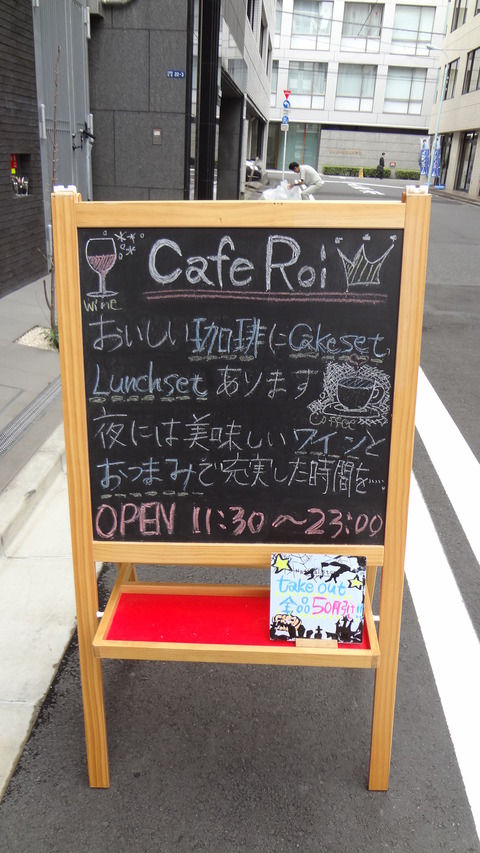 Cafe Roi
wine
おいしい珈琲にCakeset,
Lunchset あります
Coffee
夜には美味しいワインと
おつまみで充実した時間を……
OPEN 11:30〜23:00
take out
全品50円引!!